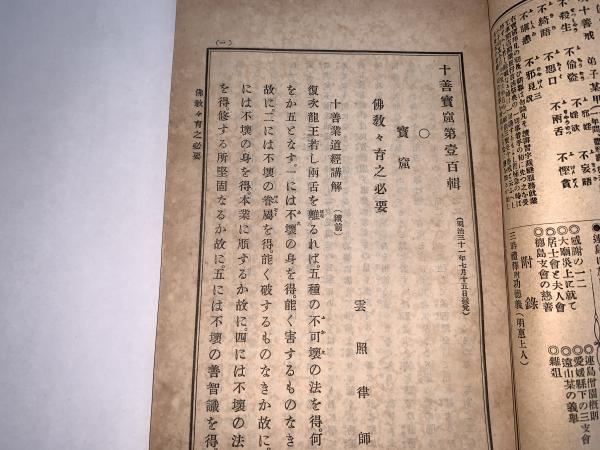 十善戒 弟子某甲一年間
不殺生 不偸盗 不邪婬 不妄語
不綺語 不惡口 不兩舌 不慳貪
不瞋恚 不邪見
附錄
三時禮釋功德義(明惠上人)
感謝の一二
◎大廟炎上に就て
◎居士會と夫人會
◎德島支會の慈善
◎連島僧園槪則
◎愛媛縣下の三支會
◎遠山某の義擧
◎雜俎
十善寶窟第壹百輯
(明治三十一年七月十五日發兌)
○寶窟
佛敎々育之必要
雲照律師
十善業道經講解(續前)
復次龍王若し兩舌を離るれば。五種の不可壞の法を得。何
をか五となす。一には不壞の身を得。能く害するものなき
故に。二には不壞の眷屬を得。能く破するものなきか故に。三
には不壞の身を得。本業に順するか故に。四には不壞の法
を得。修する所堅固なるか故に。五には不壞の善智識を得
佛敎々育之必要
(一)